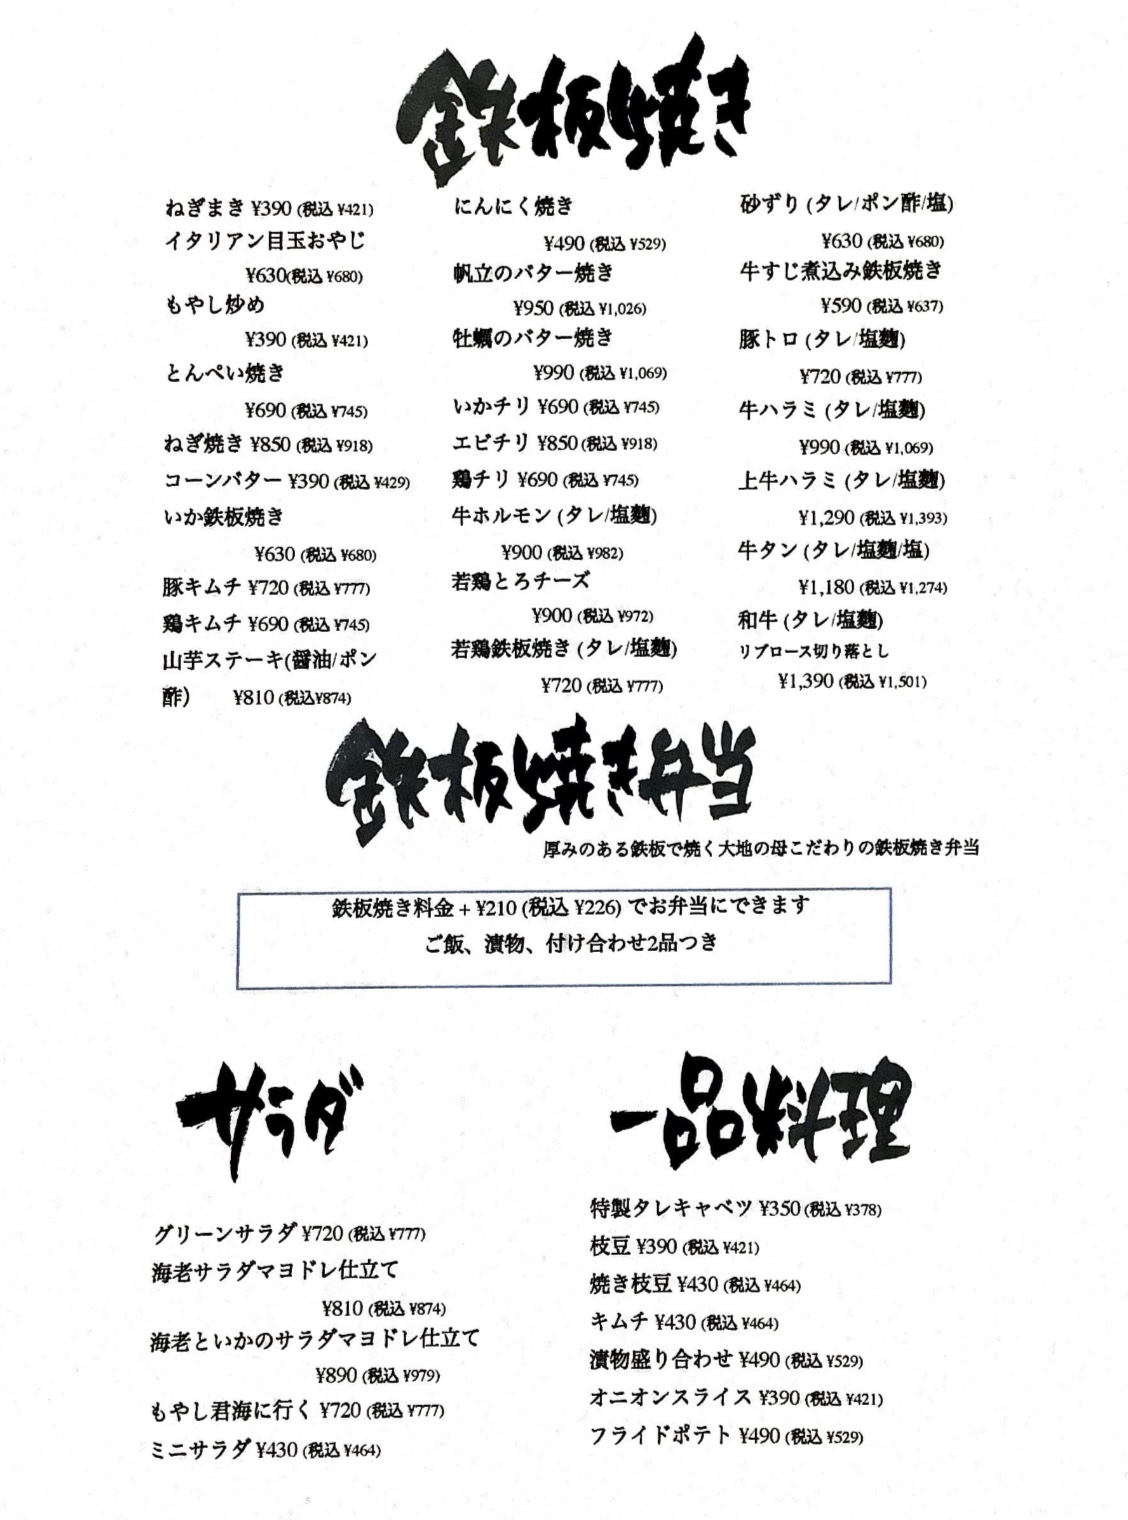 鉄板焼き
ねぎまき ¥390 (税込 ¥421)
イタリアン目玉おやじ
¥630(税込 ¥680)
もやし炒め
¥390 (税込 ¥421)
とんぺい焼き
¥690 (税込 ¥745)
ねぎ焼き ¥850 (税込 ¥918)
コーンバター ¥390 (税込 ¥429)
いか鉄板焼き
¥630 (税込 ¥680)
豚キムチ ¥720 (税込 ¥777)
鶏キムチ ¥690 (税込 ¥745)
山芋ステーキ(醤油/ポン
酢) ¥810 (税込¥874)
にんにく焼き
¥490 (税込 ¥529)
帆立のバター焼き
¥950 (税込 ¥1,026)
牡蠣のバター焼き
¥990 (税込 ¥1,069)
いかチリ ¥690 (税込 ¥745)
エビチリ ¥850 (税込 ¥918)
鶏チリ ¥690 (税込 ¥745)
牛ホルモン (タレ/塩麹)
¥900 (税込 ¥982)
若鶏とろチーズ
¥900 (税込 ¥972)
若鶏鉄板焼き (タレ/塩麹)
¥720 (税込 ¥777)
砂ずり (タレ/ポン酢/塩)
¥630 (税込 ¥680)
牛すじ煮込み鉄板焼き
¥590 (税込 ¥637)
豚トロ (タレ/塩麹)
¥720 (税込 ¥777)
牛ハラミ (タレ/塩麹)
¥990 (税込 ¥1,069)
上牛ハラミ (タレ/塩麹)
¥1,290 (税込 ¥1,393)
牛タン (タレ/塩麹/塩)
¥1,180 (税込 ¥1,274)
和牛 (タレ/塩麹)
リブロース切り落とし
¥1,390 (税込 ¥1,501)
鉄板焼き弁当
厚みのある鉄板で焼く大地の母こだわりの鉄板焼き弁当
鉄板焼き料金 + ¥210 (税込 ¥226) でお弁当にできます
ご飯、漬物、付け合わせ2品つき
サラダ
グリーンサラダ ¥720 (税込 ¥777)
海老サラダマヨドレ仕立て
¥810 (税込 ¥874)
海老といかのサラダマヨドレ仕立て
¥890 (税込 ¥979)
もやし君海に行く ¥720 (税込 ¥777)
ミニサラダ ¥430 (税込 ¥464)
一品料理
特製タレキャベツ ¥350 (税込 ¥378)
枝豆 ¥390 (税込 ¥421)
焼き枝豆 ¥430 (税込 ¥464)
キムチ ¥430 (税込 ¥464)
漬物盛り合わせ ¥490 (税込 ¥529)
オニオンスライス ¥390 (税込 ¥421)
フライドポテト ¥490 (税込 ¥529)